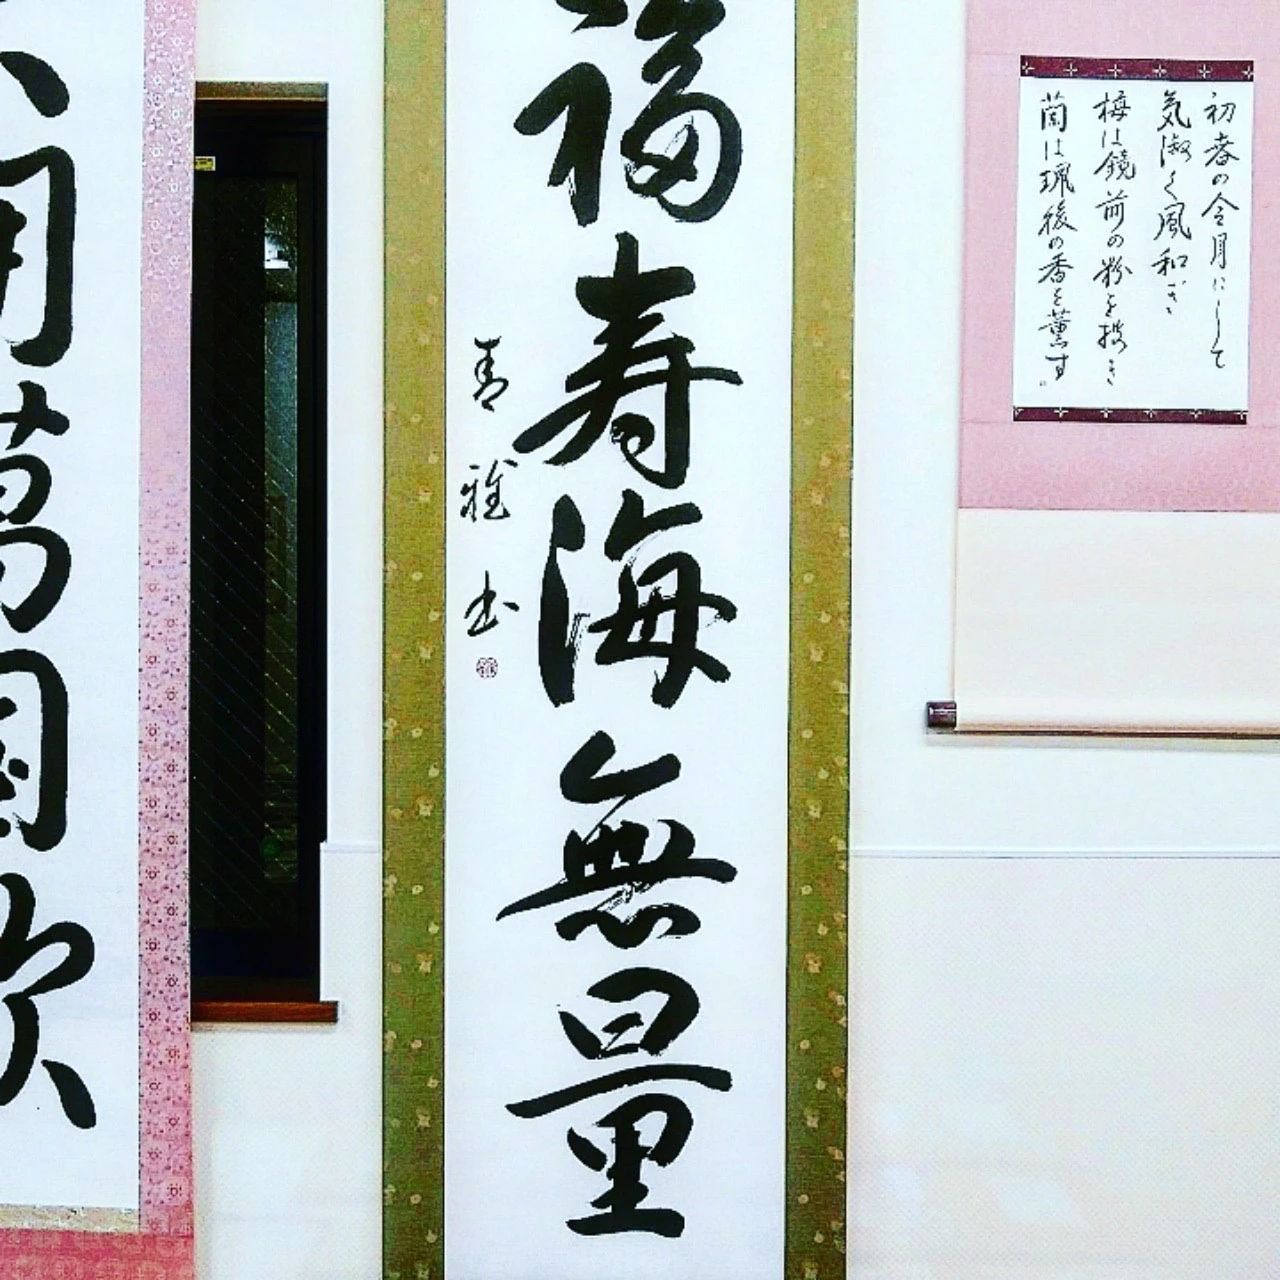 初春の令月にして
気淑く風和ぎ
梅は鏡前の粉を披き
蘭は珮後の香を薫す。
福寿海無量
青雅書
萬國歡